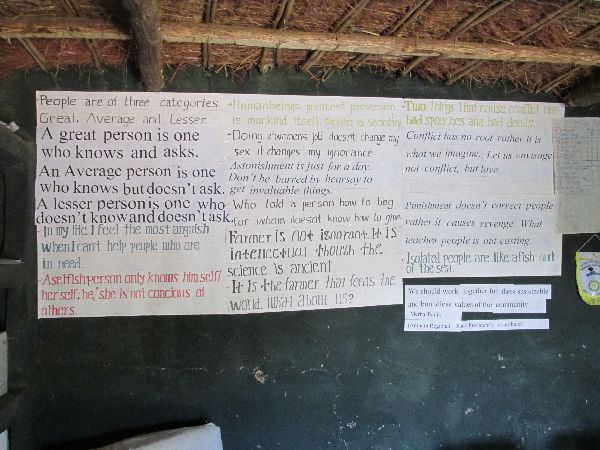 People are of three categories
Great, Average and Lesser
A great person is one
who knows and asks.
An Average person is one
who knows but doesn't ask.
A lesser person is one who
doesn't know and doesn't ask.
In my life I feel the most anguish
when I can't help people who are
in need.
A selfish person only knows himself/
her self, he/she is not concious of
others
Human beings greatest possession
is mankind itself;
Doing a womens job doesn't change my
sex it changes my ignorance
Astonishment is just for a day.
Don't be barred by hearsay to
get invaluable things.
Who told a person how to beg
for whom doesnt know how to give
Farmer is not ignorant. It is
intellectual though the
science is ancient
It is the farmer that feeds the
world. What about us?
Two things that cause conflict are
bad speeches and bad deeds.
Conflict has no root rather it is
what we imagine. Let us envisage
not conflict, but love.
Punishment doesn't correct people
rather it causes revenge. What
teaches people is out casting.
Isolated people are like a fish out
of the sea.
We should work together for these sustainable
and boundless values of the community
(Amhara Regional State